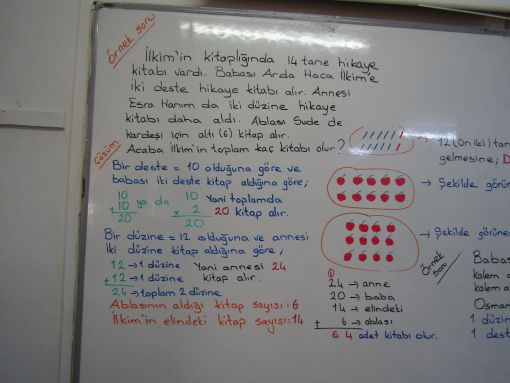 Örnek soru
İlkim'in kitaplığında 14 tane hikaye
kitabı vardı. Babası Arda Hoca İlkim'e
iki deste hikaye kitabı alır. Annesi
Esra Hanım da iki düzine hikaye
kitabı daha aldı. Ablası Sude de
kardeşi için altı (6) kitap alır.
Acaba İlkim'in toplam kaç kitabı olur?
Çözüm
Bir deste = 10 olduğuna göre ve
babası iki deste kitap aldığına göre;
10
+ 10
20
ya da
10
x 2
20
Yani toplamda
20 kitap alır.
Bir düzine = 12 olduğuna ve annesi
iki düzine kitap aldığına göre;
12 → 1 düzine
+ 12 → 1 düzine
24 → toplam 2 düzine
Yani annesi 24
kitap alır.
Ablasının aldığı kitap sayısı: 6
İlkim'in elindeki kitap sayısı: 14
1
24 → anne
20 → baba
14 → elindeki
+ 6 → ablası
64 adet kitabı olur.
12 (On iki) tan
gelmesine; D
→ Şekilde görün
→ Şekilde görüne
Örnek soru
Babas
kalem a
kalem a
Osman
1 düzin
1 dest